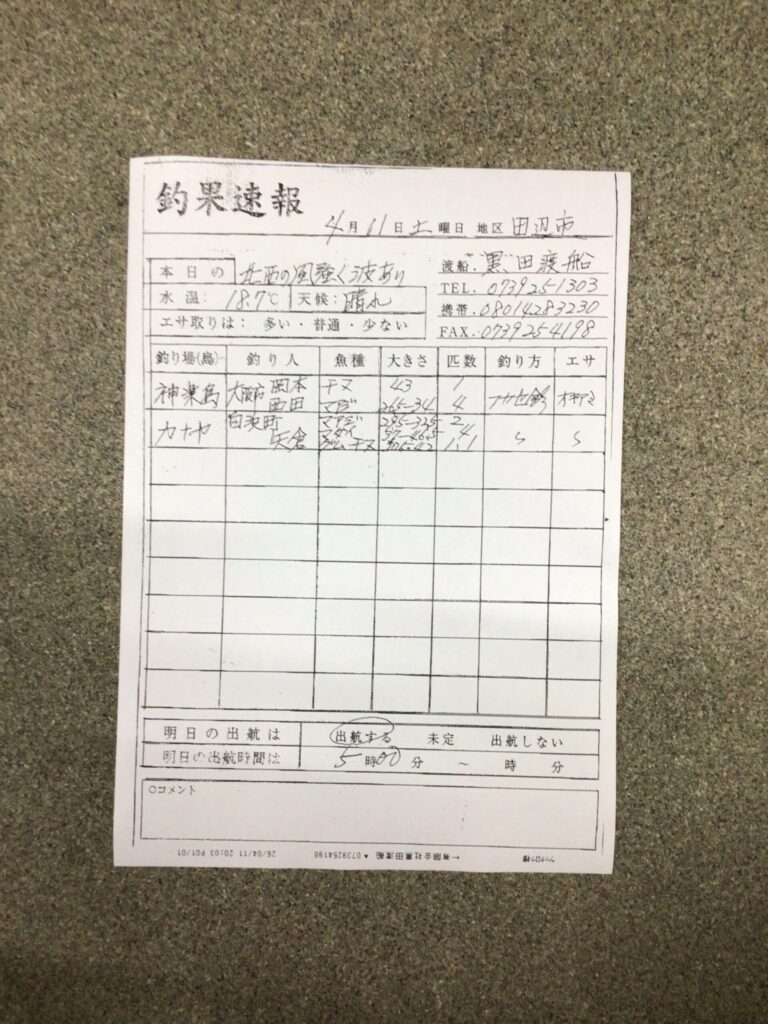 釣果速報
4月11日土曜日 地区 田辺市
本日の 北西の風強く波あり
水温: 18.7℃ 天候: 晴れ
エサ取りは: 多い・普通・少ない
渡船. 黒田渡船
TEL. 0739251303
携帯. 08014283230
FAX. 0739254198
釣り場(島) 釣り人 魚種 大きさ 匹数 釣り方 エサ
神楽島 大阪市 岡本 チヌ 43 1
西田 マアジ 26.5-34 4 フカセ釣 オキアミ
カナヤ 白浜町 マアジ 29.5-32.5 2
矢倉 マダイ 4 〃 〃
グレ、チヌ 1.1
明日の出航は 出航する 未定 出航しない
明日の出航時間は 5時00分 ～ 時 分
○コメント
26/04/11 20:03 P01/01 ▲ 0739254198 ←有限会社黒田渡船